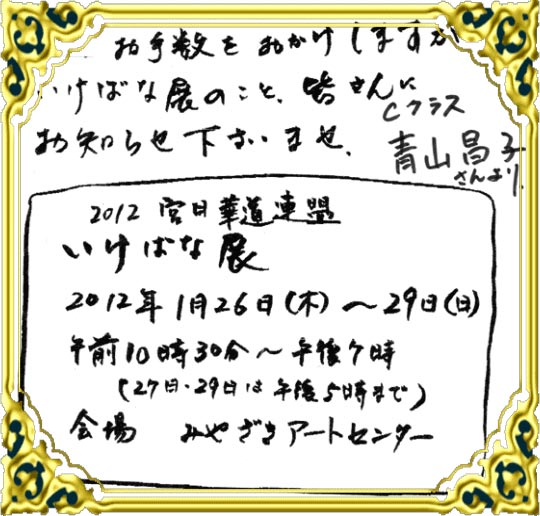 お手数をおかけしますが
いけばな展のこと、皆さんに
Cクラス
お知らせ下さいませ、
青山昌子
さんより
2012 宮日華道連盟
いけばな展
2012年1月26日(木)〜29日(日)
午前10時30分〜午後7時
(27日・29日は午後5時まで)
会場 みやざきアートセンター